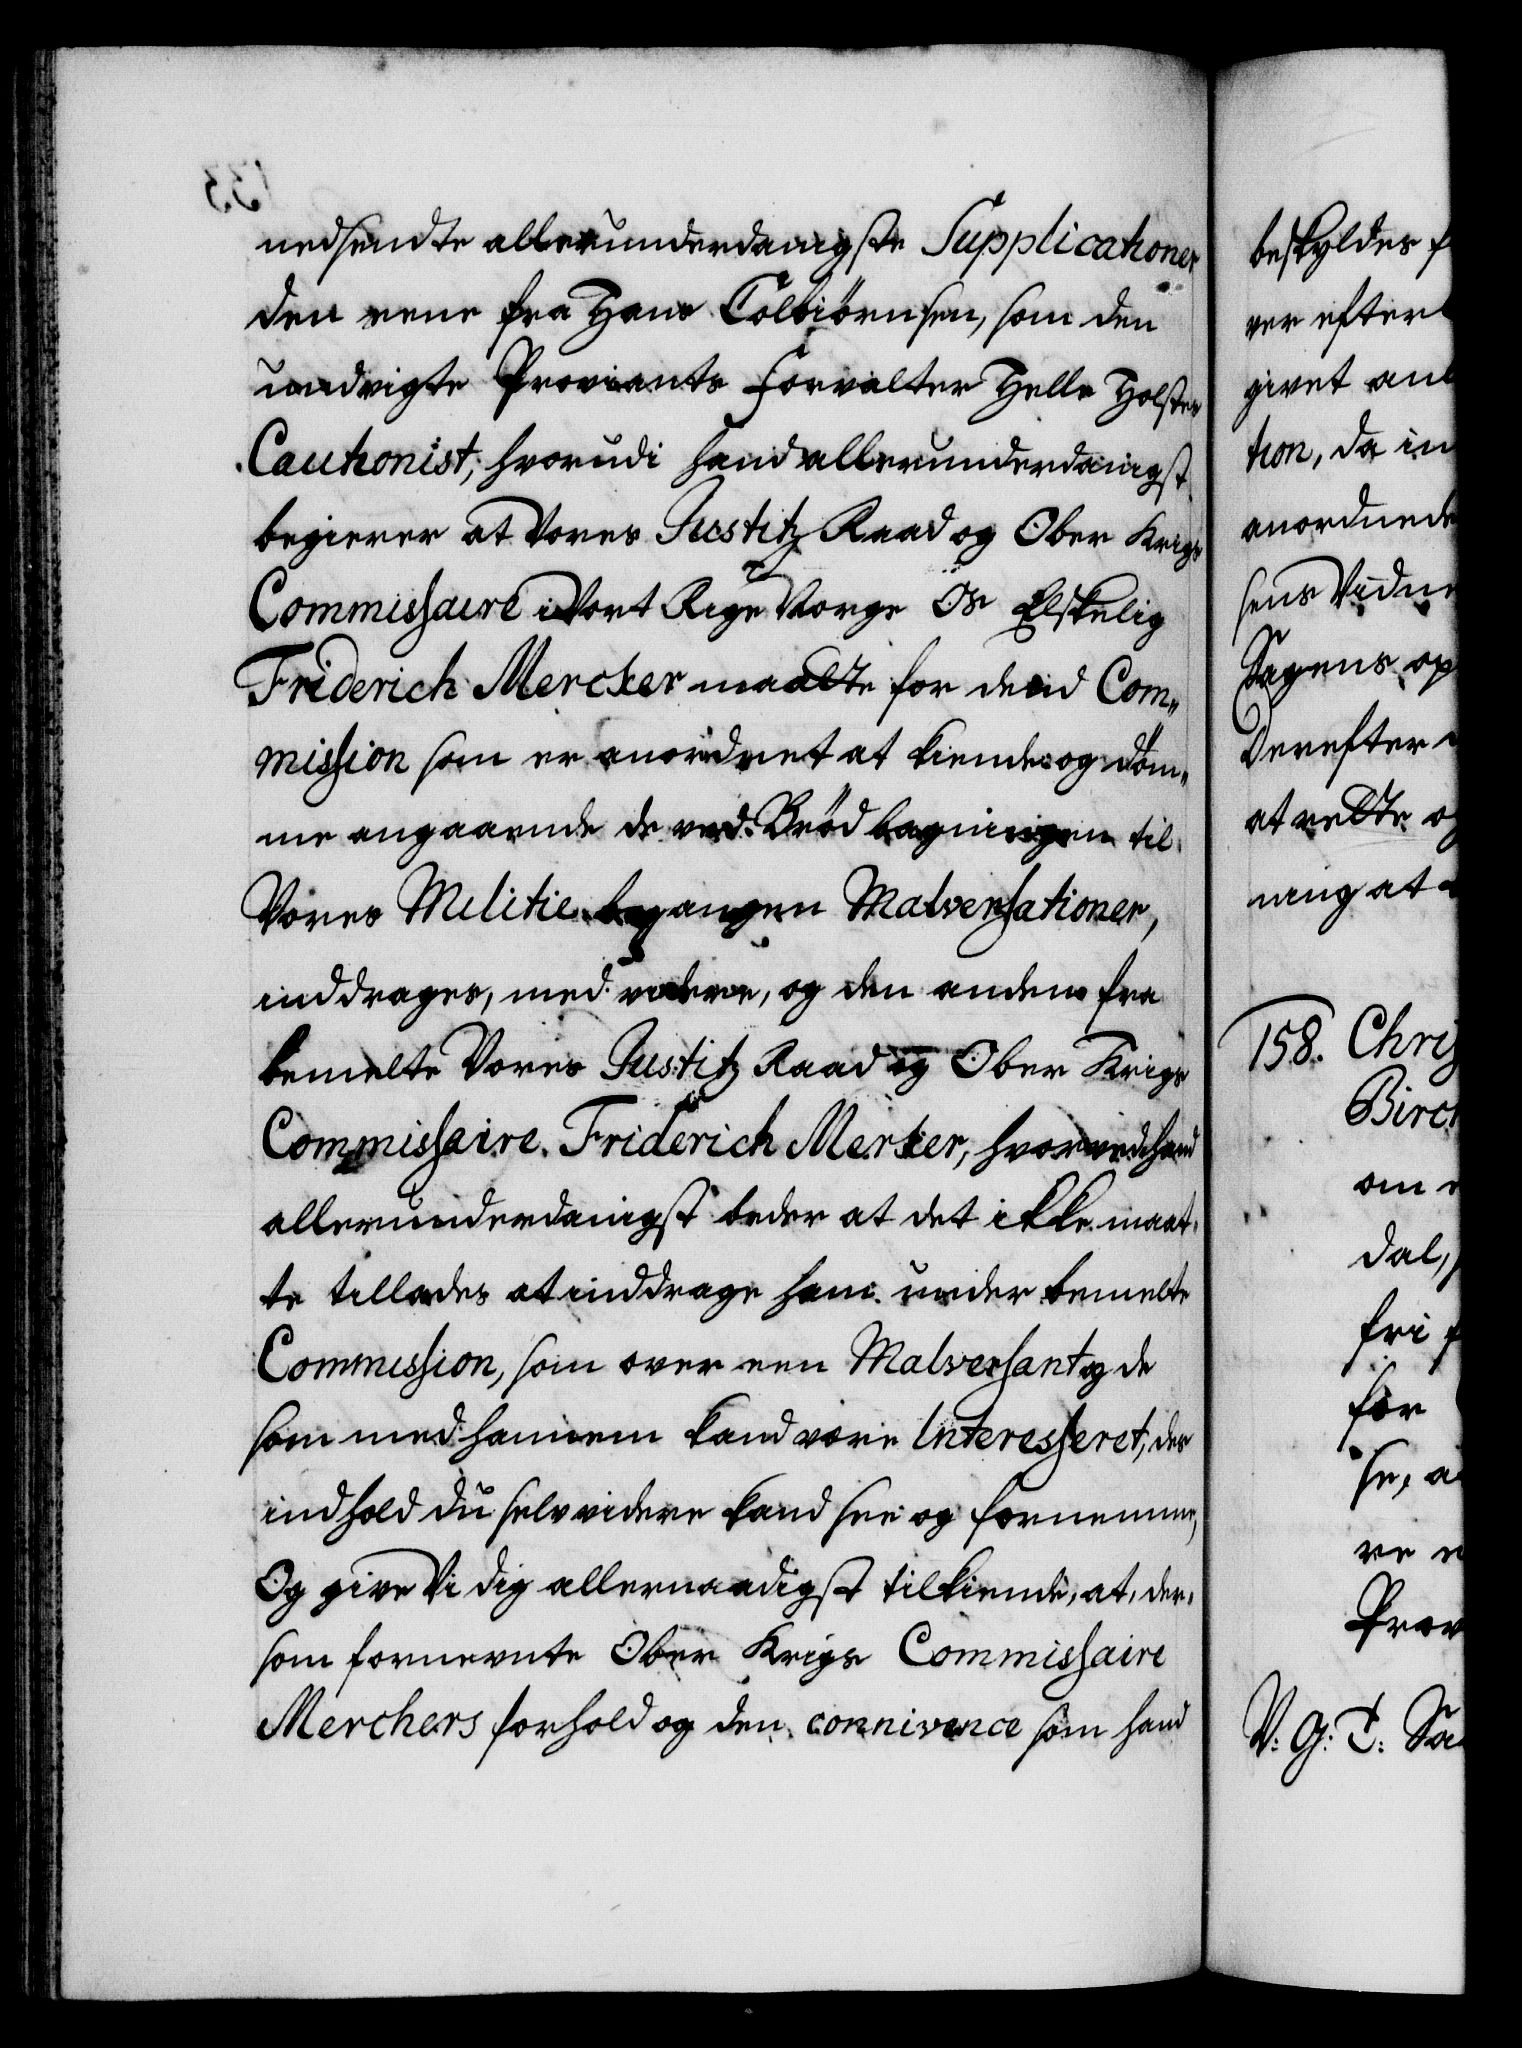 nedsendte allerunderdanigste Supplicationer
den eene fra Hans Colbiörnsen, som den
undvigte Proviants Forvalter Helle Holstes
Cautionist, hvorudi hand allerunderdanigst
begierer at Vores Justitz Raad og Ober Krigs
Commissaire i Vort Rige Norge Os Elskelig
Friderich Mercker maatte for dend Com„
mission som er anordnet at kiende og döm„
me angaaende de ved Brödbagningen til
Vores Militie begangen Malversationer,
inddrages, med videre, og den anden fra
bemelte Vores Justitz Raad og Ober Krigs
Commissaire Friderich Merker, hvorved hand
allerunderdanigst beder at det ikke maat„
te tillades at inddrage ham under bemelte
Commission, som over een Malversant og de
som med hannem kand være Interesseret, des
indhold du selv videre kand see og fornemme,
Og give Vi dig allernaadigst tilkiende, at, der„
som fornevnte Ober Krigs Commissaire
Merchers forhold og den connivence som hand
beskyldes f
ver efter
givet an
tion, da in
anordnede
sens Vidne
Sagens op
derefter
at rette o
ning at
158. Chri
Birc
om
dal,
fri f
for
se, a
re
Prov
V. G. T. Sa
133